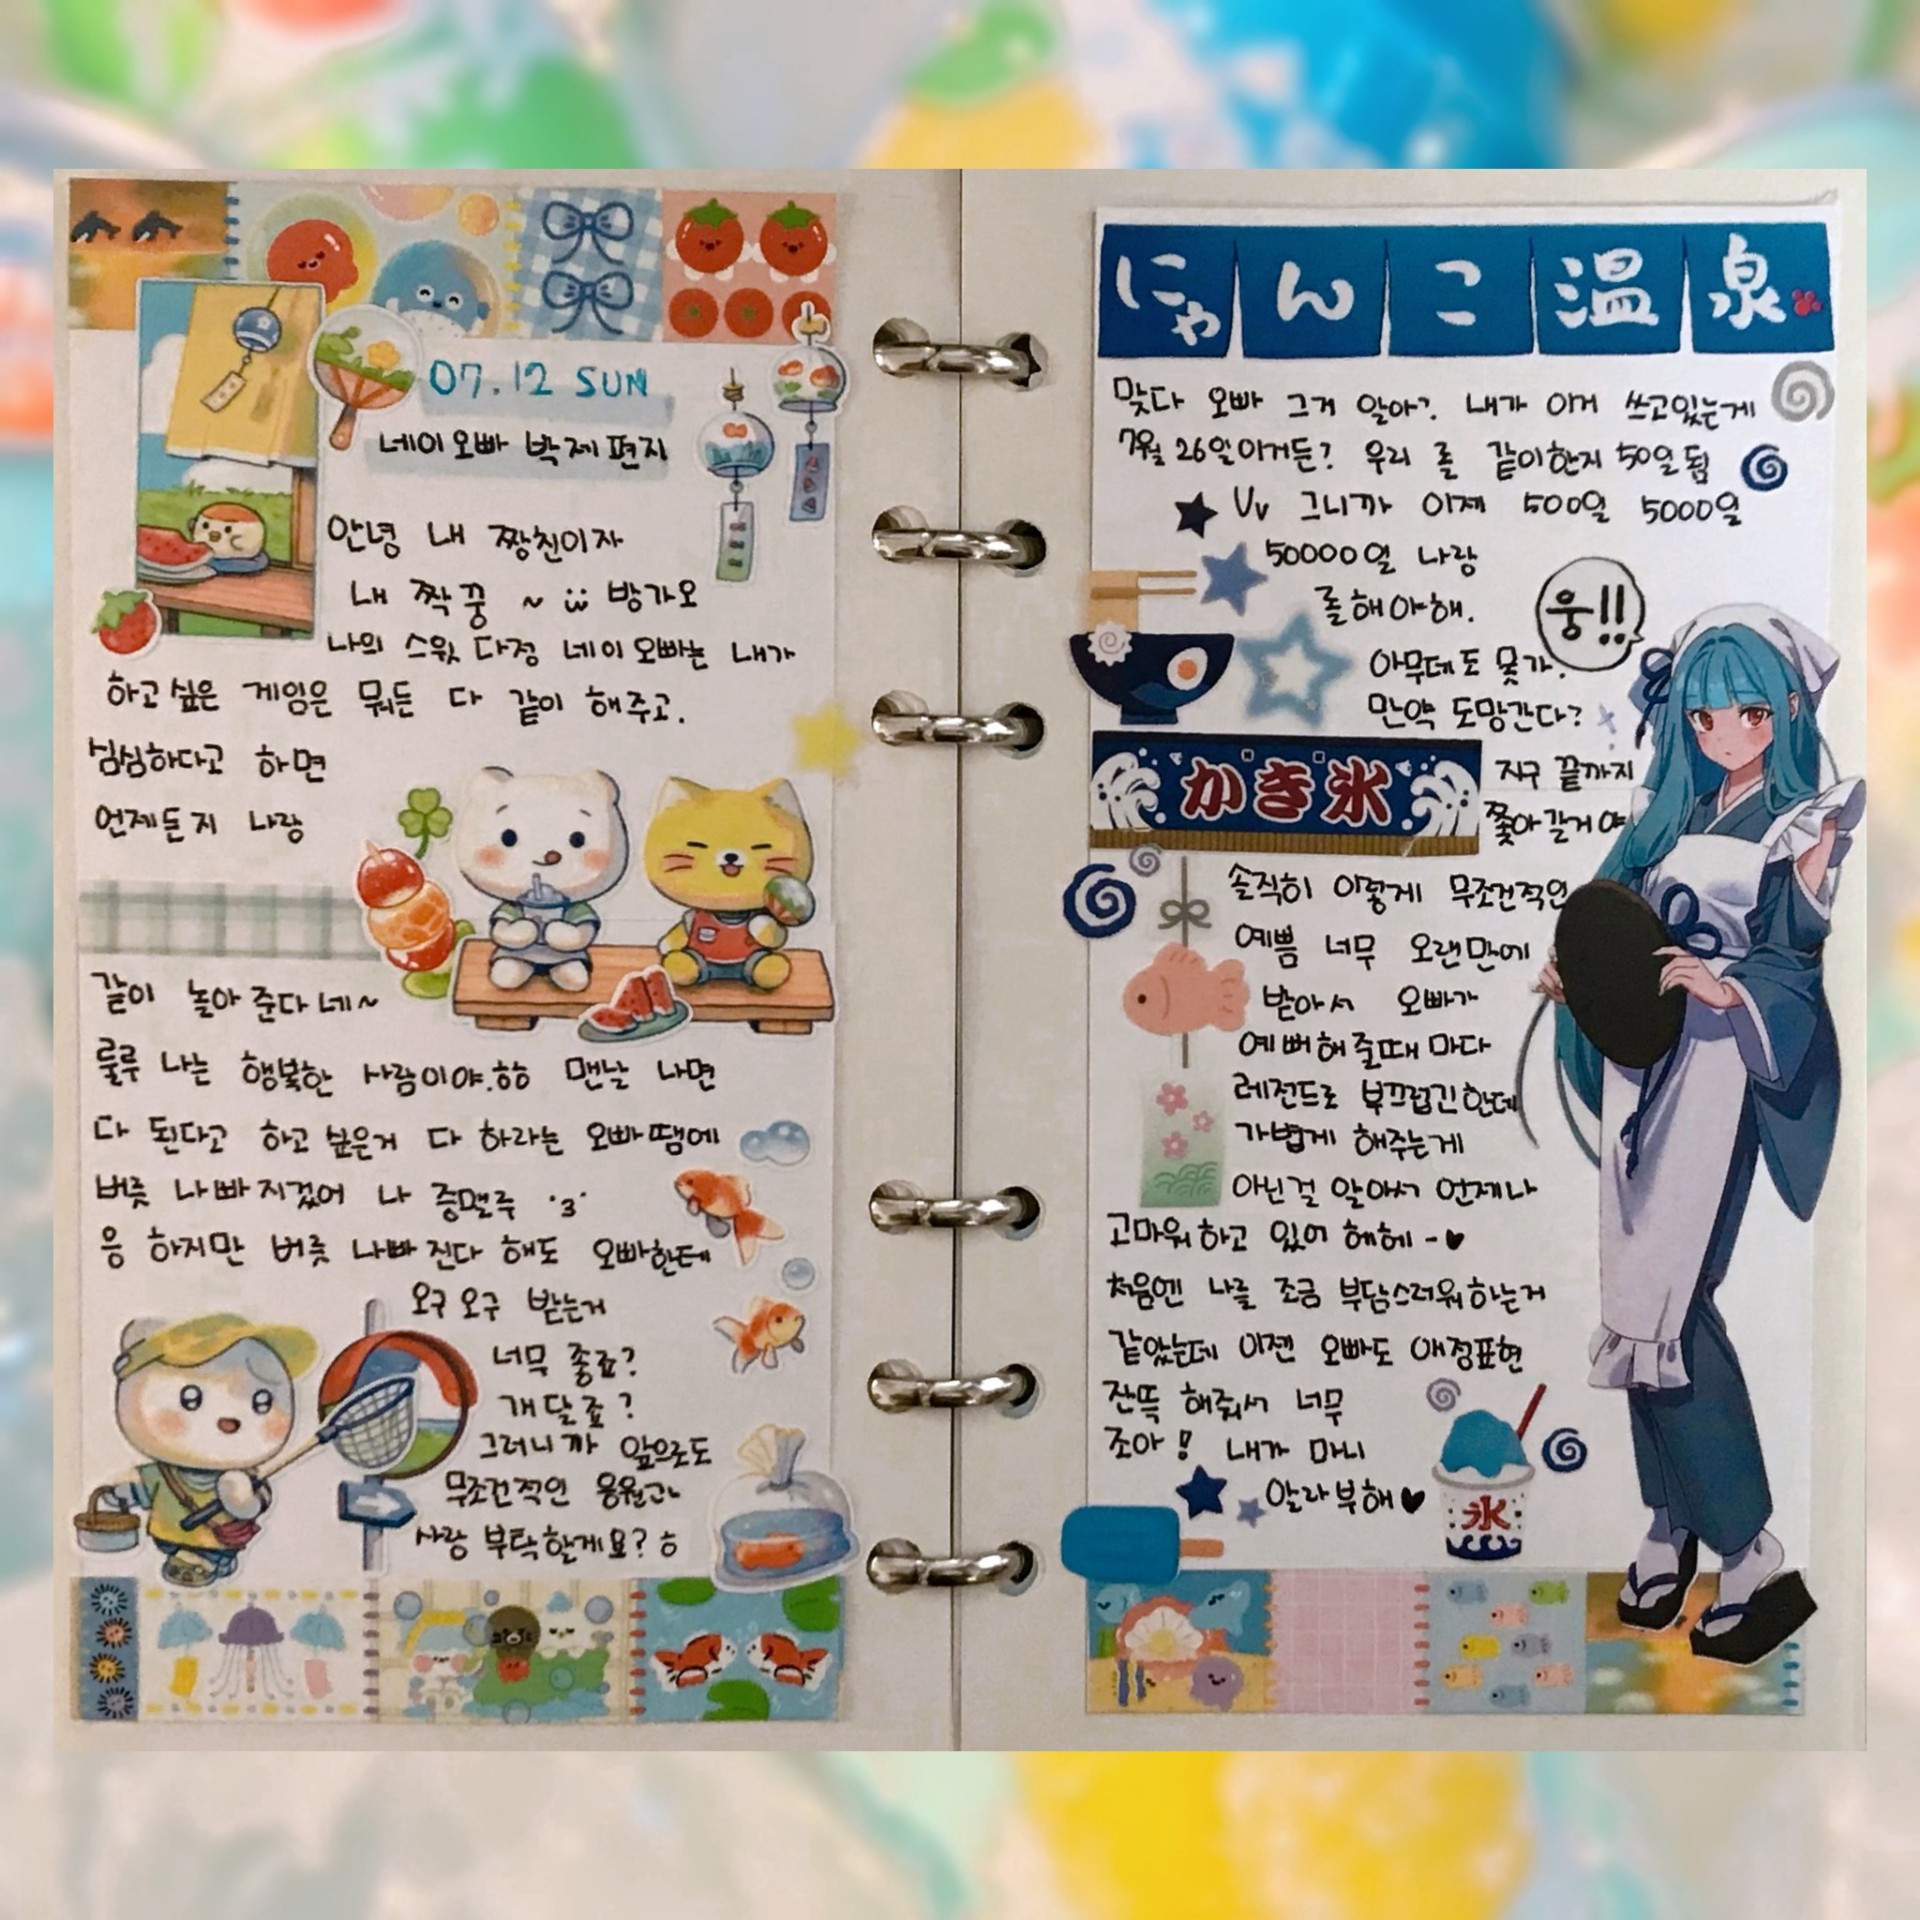 07.12 SUN
네이오빠 박제 편지
안녕 내 짱친이자
내 짝꿍 ~ 방가오
나의 스윗 다정 네이오빠는 내가
하고싶은 게임은 뭐든 다 같이 해주고.
심심하다고 하면
언제든지 나랑
같이 놀아준다네~
룰루 나는 행복한 사람이야.ㅎㅎ 맨날 나면
다 된다고 하고싶은거 다 하라는 오빠땜에
버릇 나빠지겄어 나 증맬루 ·3·
응 하지만 버릇 나빠진다 해도 오빠한테
오구오구 받는거
너무 좋죠?
개달죠?
그러니까 앞으로도
무조건적인 응원과
사랑 부탁할게요?ㅎ
にゃんこ温泉
맞다 오빠 그거 알아? 내가 이거 쓰고있는게
7월 26일이거든? 우리 롤 같이한지 50일됨
Uv 그니까 이제 500일 5000일
50000일 나랑
롤해야해.
웅!!
아무데도 못가.
만약 도망간다?
かき氷
지구 끝까지
쫓아갈거야
솔직히 이렇게 무조건적인
예쁨 너무 오랜만에
받아서 오빠가
예뻐해줄때마다
레전드로 부끄럽긴한데
가볍게 해주는게
아닌걸 알아서 언제나
고마워하고 있어 헤헤-♥
처음엔 나를 조금 부담스러워하는거
같았는데 이젠 오빠도 애정표현
잔뜩 해줘서 너무
조아! 내가 마니
알라부해♥
氷